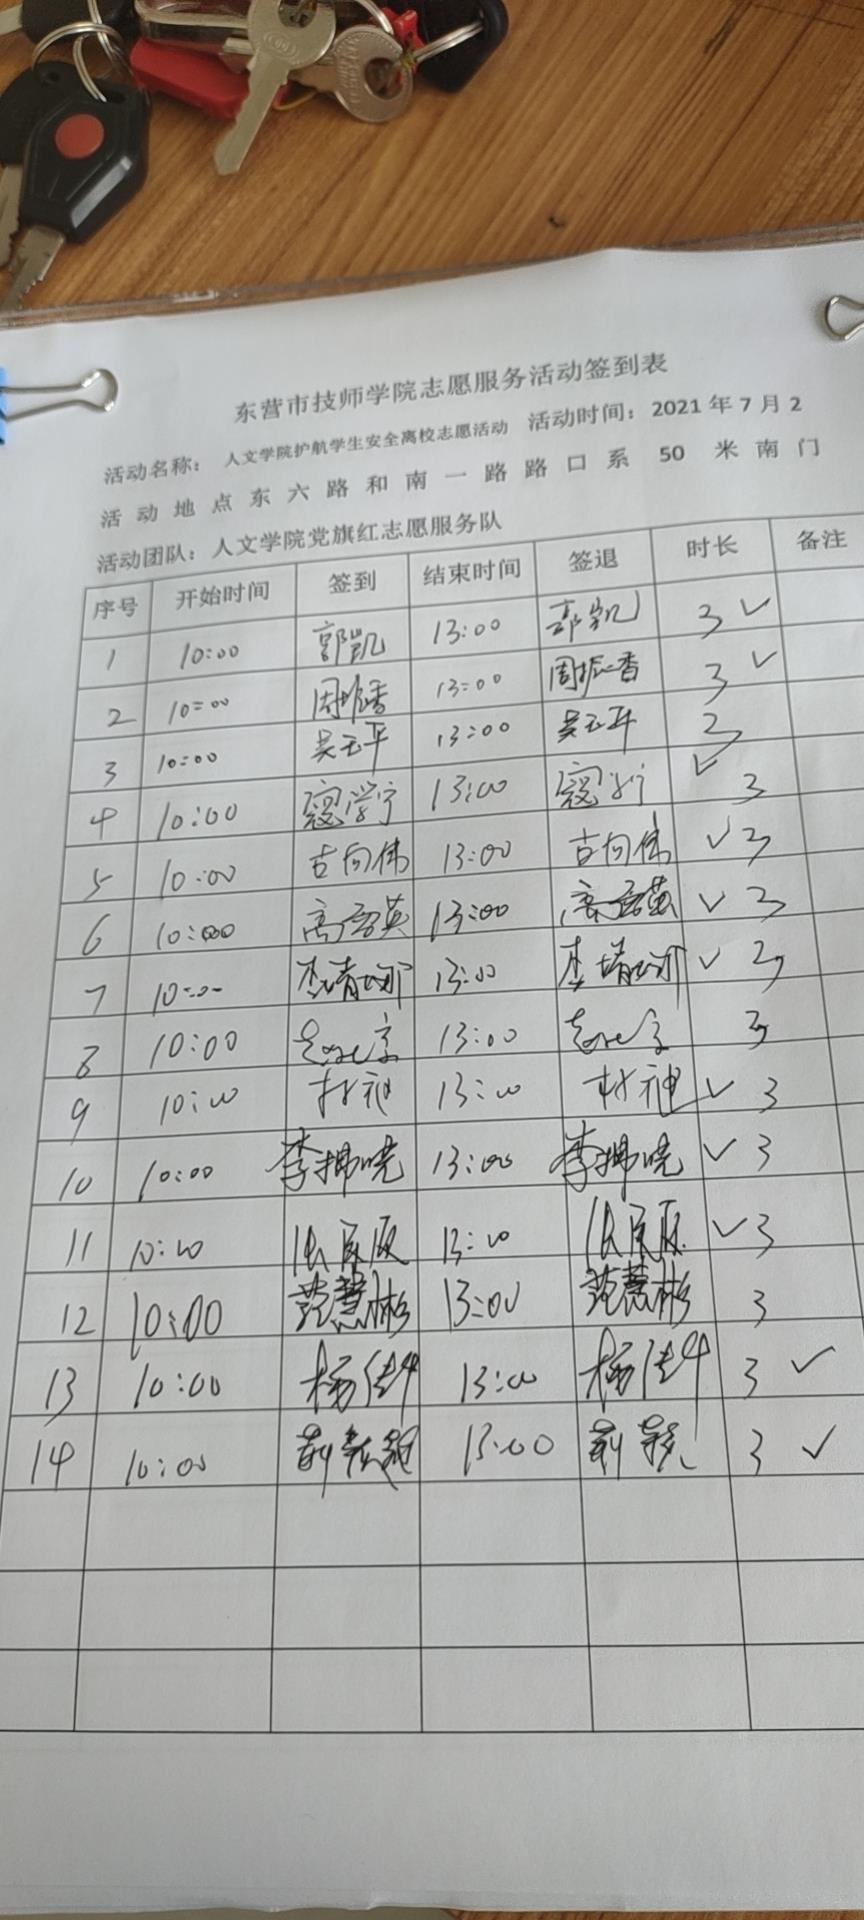 东营市技师学院志愿服务活动签到表
活动名称： 人文学院护航学生安全离校志愿活动 活动时间：2021年7月2
活动地点东六路和南一路路口系 50 米南门
活动团队：人文学院党旗红志愿服务队
序号 开始时间 签到 结束时间 签退 时长 备注
1 10:00 郭凯 13:00 郭凯 3 ✓
2 10:00 周振香 13:00 周振香 3 ✓
3 10:00 吴玉平 13:00 吴玉平 3
4 10:00 寇学宁 13:00 寇学宁 ✓ 3
5 10:00 古向伟 13:00 古向伟 ✓ 3
6 10:00 13:00 ✓ 3
7 10:00 李靖娜 13:00 李靖娜 ✓ 3
8 10:00 13:00 3
9 10:00 13:00 ✓ 3
10 10:00 李拂晓 13:00 李拂晓 ✓ 3
11 10:00 13:00 ✓ 3
12 10:00 范慧彬 13:00 范慧彬 3
13 10:00 13:00 3 ✓
14 10:00 13:00 3 ✓